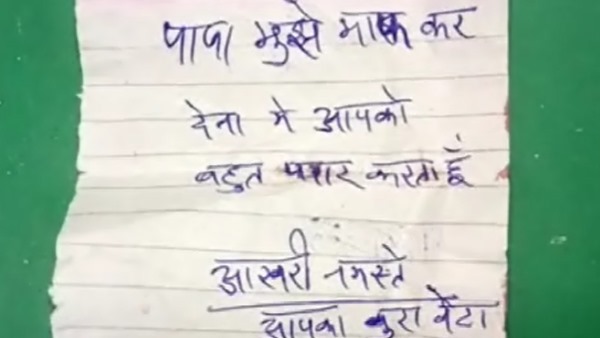 पापा मुझे माफ कर
देना मे आपको
बहुत प्यार करता हूँ
आखरी नमस्ते
आपका बुरा बेटा